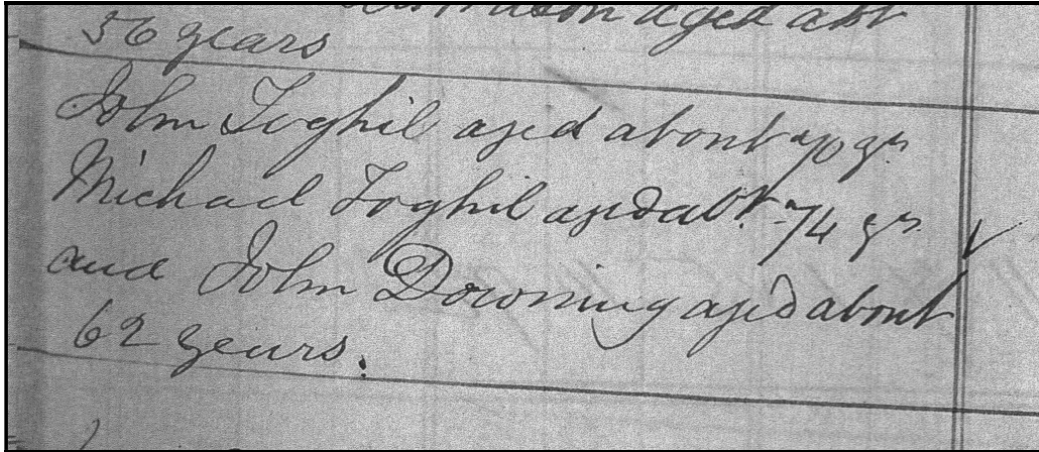 aged abt
56 years
John Toghil aged about 70 yrs
Michael Toghil aged abt. 74 yrs
and John Downing aged about
62 years.